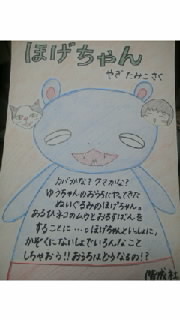 ほげちゃん
やぎたみこ さく
カバかな？クマかな？
ゆうちゃんのおうちにやってきた
ぬいぐるみのほげちゃん。
あるひネコのムウとおるすばんを
することに…。ほげちゃんといっしょに、
かぞくにないしょでいろんなこと
しちゃおう!!おるすばんはどうなるの!?
偕成社